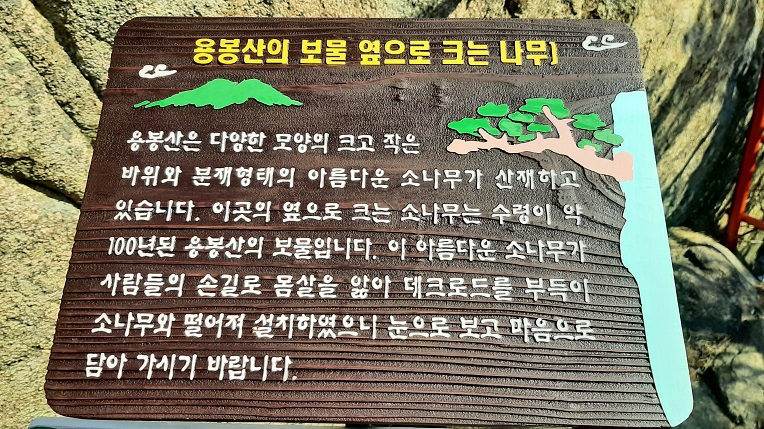 용봉산의 보물 옆으로 크는 나무!
용봉산은 다양한 모양의 크고 작은
바위와 분재형태의 아름다운 소나무가 산재하고
있습니다. 이곳의 옆으로 크는 소나무는 수령이 약
100년된 용봉산의 보물입니다. 이 아름다운 소나무가
사람들의 손길로 몸살을 앓아 데크로드를 부득이
소나무와 떨어져 설치하였으니 눈으로 보고 마음으로
담아 가시기 바랍니다.